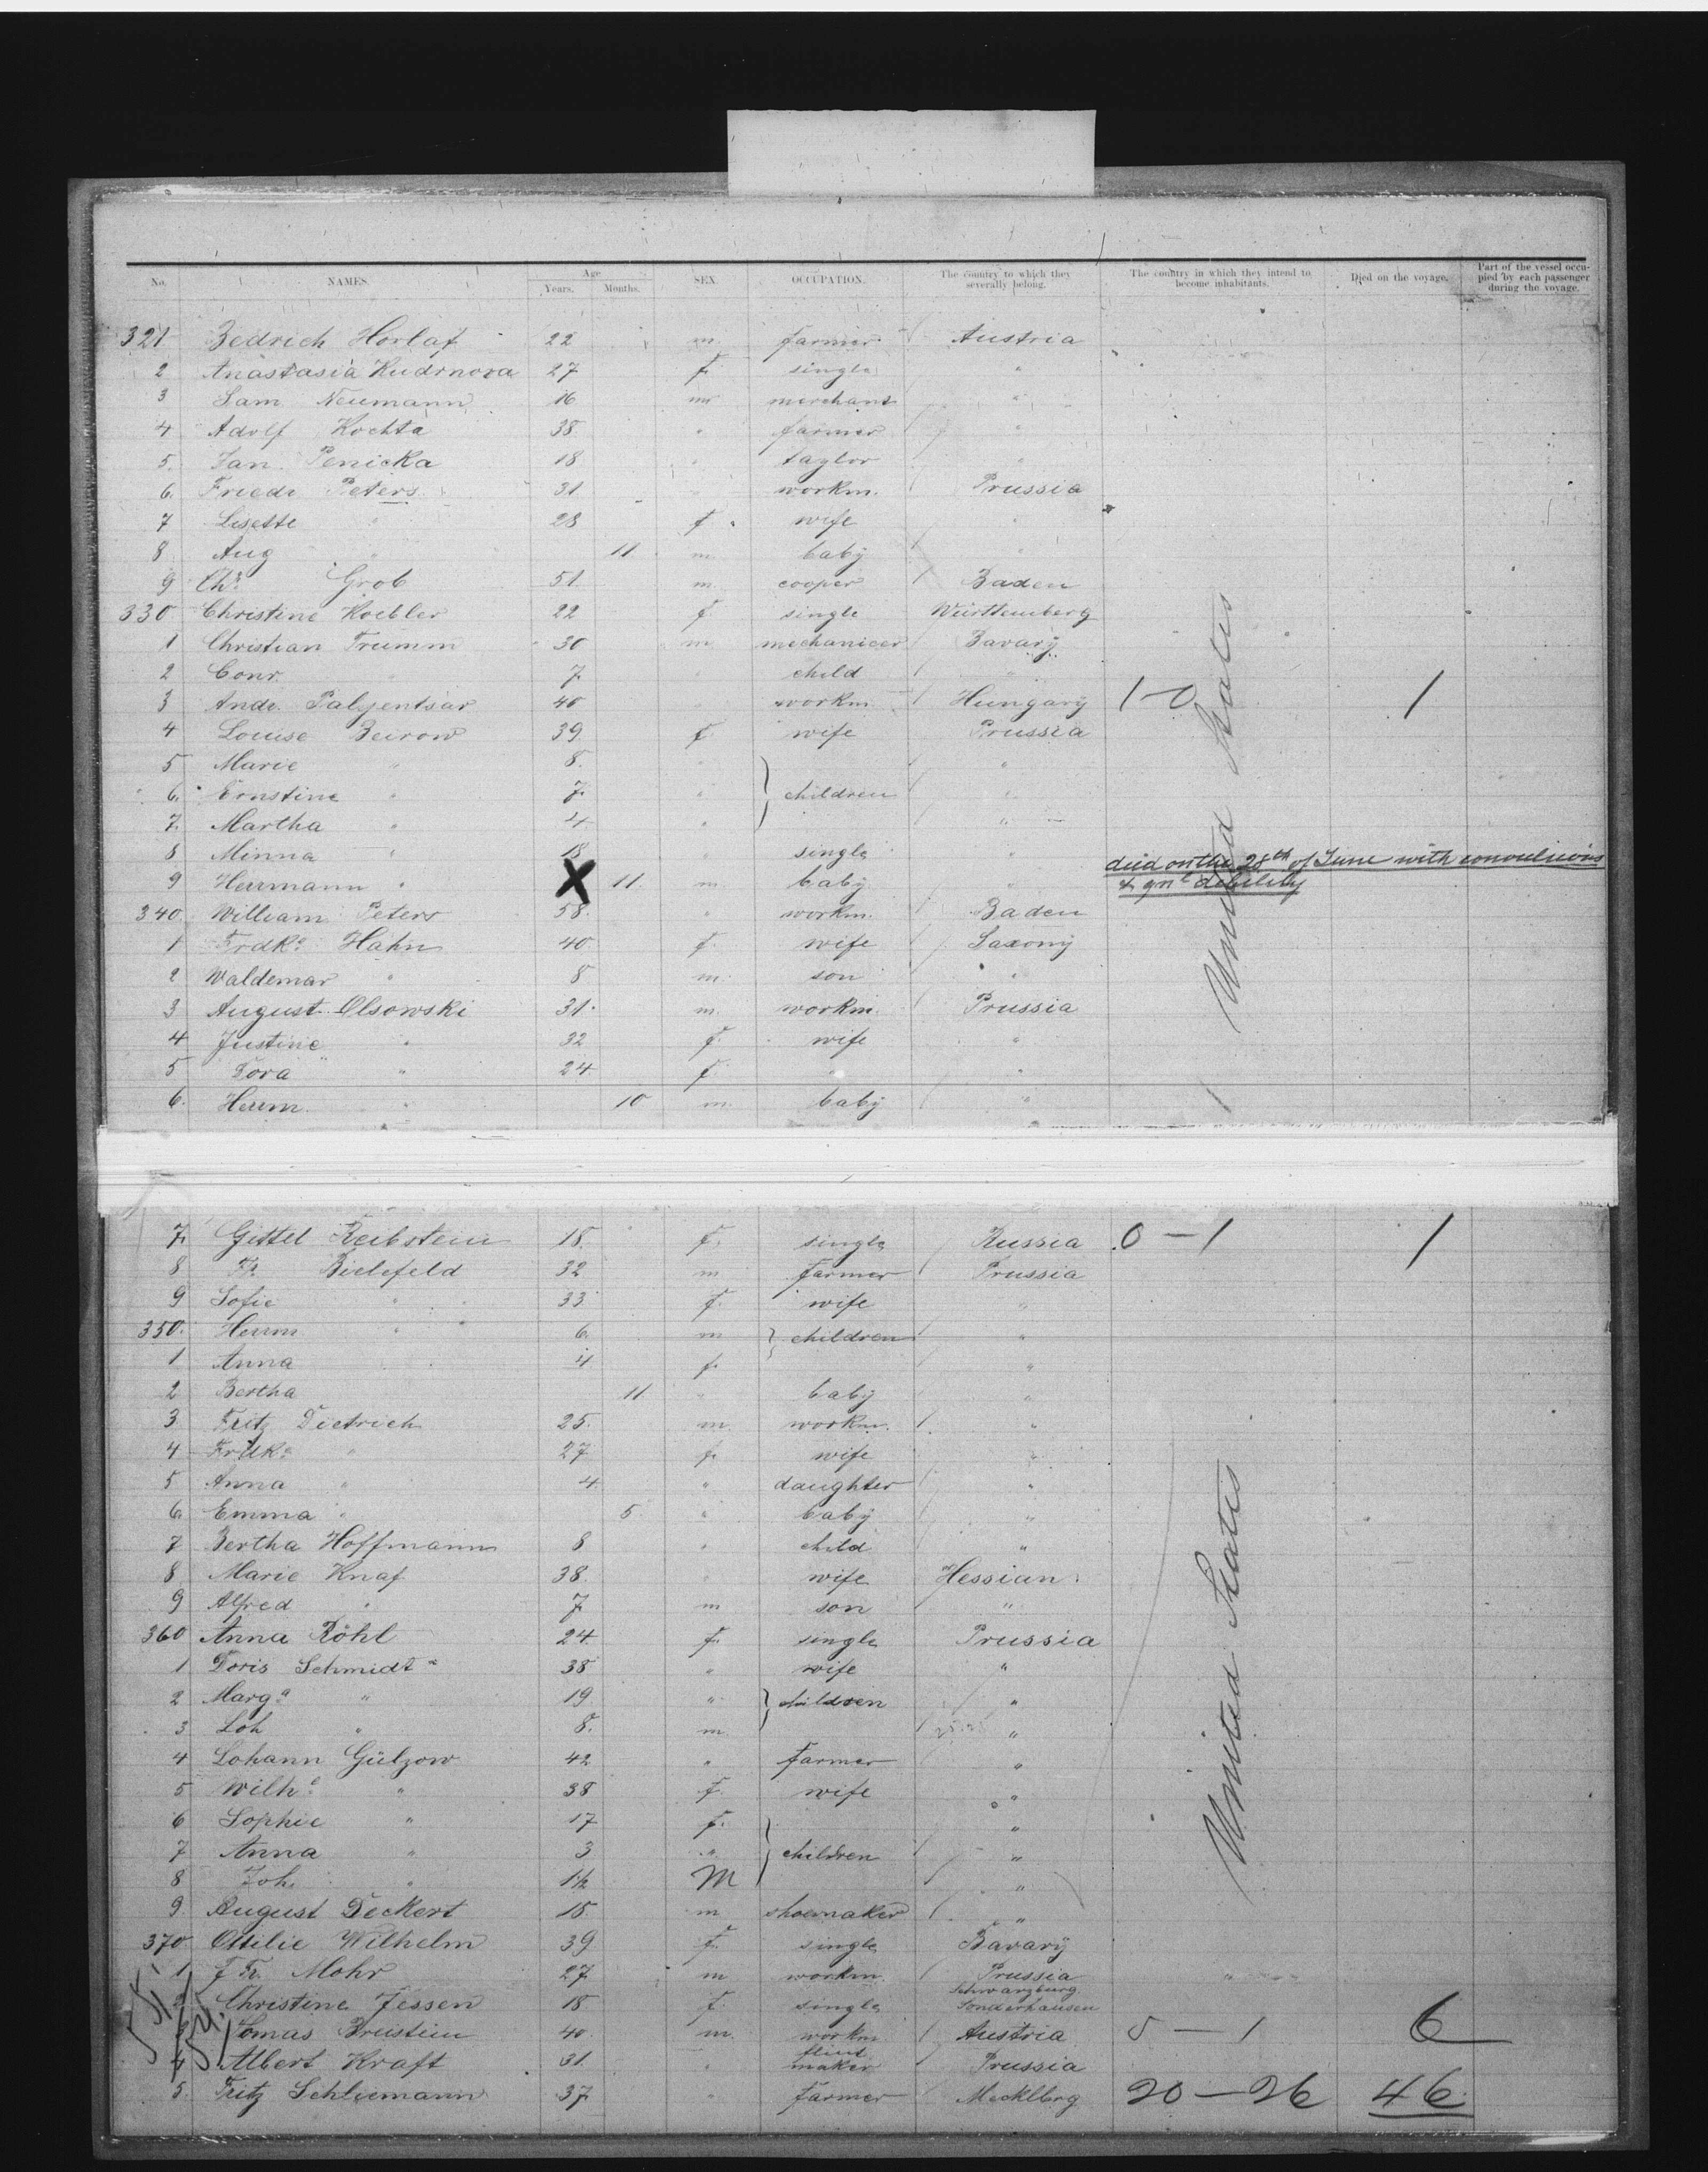 No. NAMES. Age Years. Months. SEX. OCCUPATION. The country to which they severally belong. The country in which they intend to become inhabitants. Died on the voyage. Part of the vessel occupied by each passenger during the voyage.
321 Bedrich Horlaf 22 m farmer Austria
2 Anastasia Kudrnova 27 f single "
3 Sam Neumann 16 m merchant "
4 Adolf Kochta 38 " farmer "
5. Jan Penicka 18 " taylor "
6. Friedr Peters 31 " workm. Prussia
7 Lisette " 28 f wife "
8 Aug " 11 m baby "
9 Chr Grob 51 m cooper Baden
330 Christine Koebler 22 f single Württemberg
1 Christian Trumm 30 m mechanicer Bavarÿ
2 Conr " 7 " child "
3 Andr. Palyentsar 40 " workm Hungarÿ 1-0 1
4 Louise Beirow 39 f wife Prussia
5 Marie " 8. " "
6. Ernstine " 7 " children "
7 Martha " 4 " "
8 Minna " 18 " single "
9 Herrmann " X 11. m baby " died on the 28th of June with convulsions & gnl debility
340 William Peters 58. " workm. Baden
1 Frdke Hahn 40 f. wife Saxonÿ
2 Waldemar " 8 m. son "
3 August Olsowski 31. m. workm Prussia
4 Justine " 32 f. wife "
5 Dora " 24 f " "
6. Herm. " 10 m. baby "
United States
7 Gittel Reibstein 18. f. single Russia 0-1 1
8 Fr. Bielefeld 32 m farmer Prussia
9 Sofie " 33 f. wife "
350. Herm " 6. m children "
1 Anna 4 f. "
2 Bertha 11. " baby "
3 Fritz Dietrich 25. m. workm. "
4 Frdke " 27 f. wife "
5 Anna " 4. " daughter "
6 Emma " 5 " baby "
7 Bertha Hoffmann 8 " child "
8 Marie Knaf 38. " wife Hessian.
9 Alfred " 7 m son "
360 Anna Röhl 24. f. single Prussia
1 Doris Schmidt 38 " wife "
2 Marga " 19 " children "
3 Joh " 8. m. "
4 Johann Gülzow 42 " farmer "
5 Wilhe " 38 f. wife "
6 Sophie " 17 f. "
7 Anna " 3 " children "
8 Joh. " 1½ M "
9. August Deckert 15 m shoemaker "
370 Ottilie Wilhelm 39 f. single Bavarÿ
1 J Fr. Mohr 27 m workm. Prussia
2 Christine Jessen 18 f. single Schwarzburg Sonderhausen
3 Tomas Breistein 40. m. workm Austria 5-1 6
4 Albert Kraft 31. " flint maker Prussia
5. Fritz Schliemann 37 " farmer Mecklbrg 20-26 46
United States